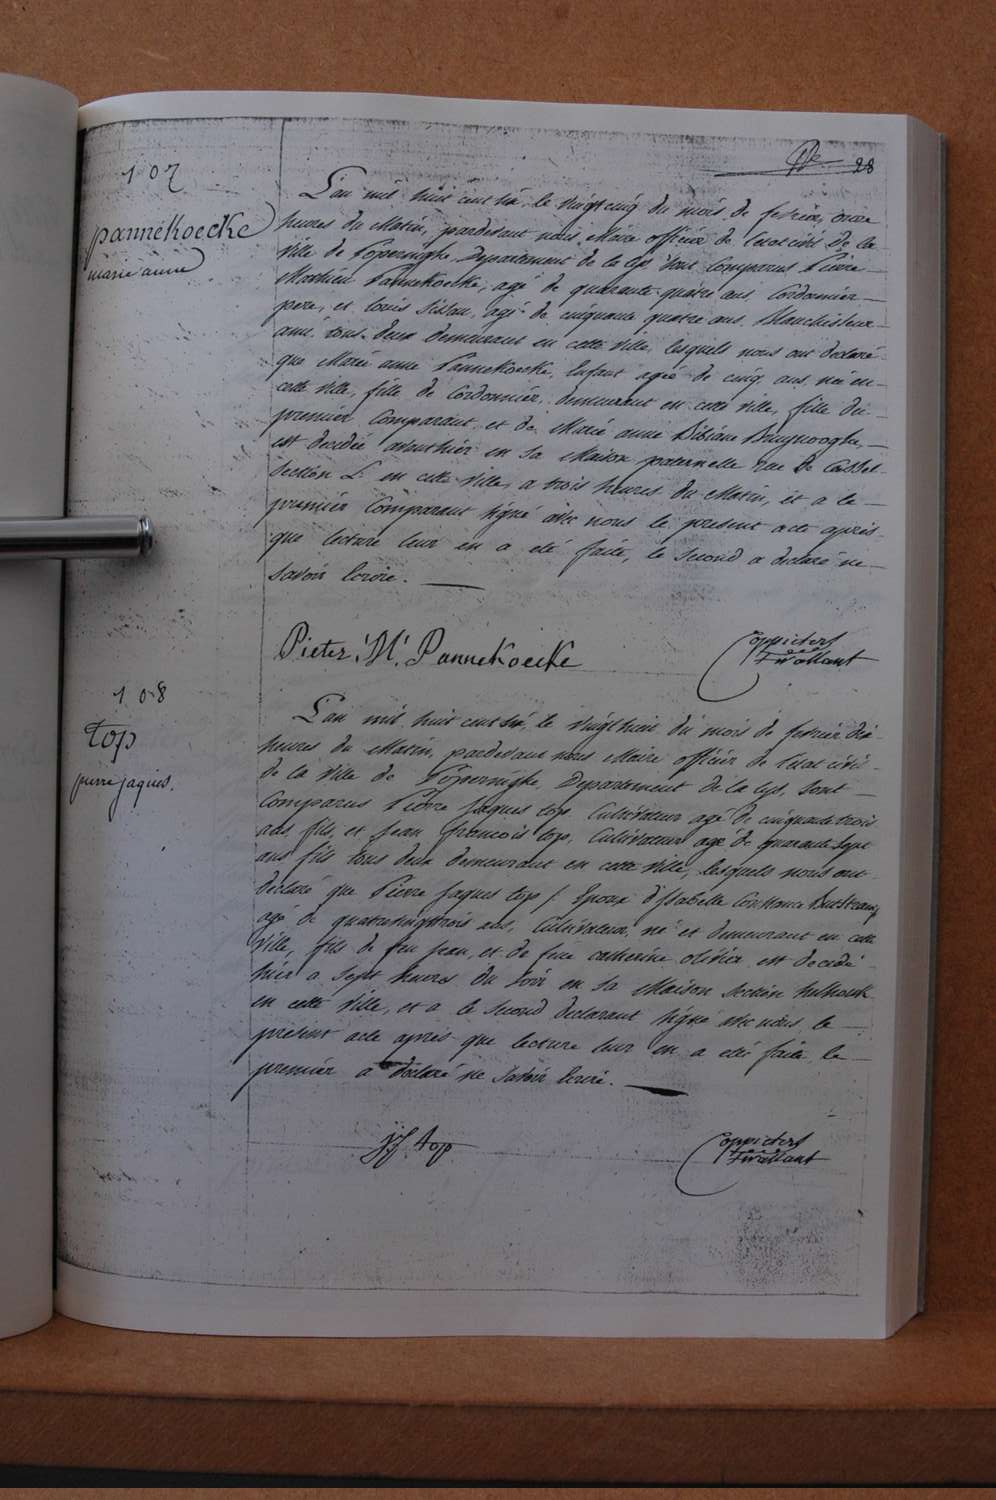 28
107
pannekoecke
marie anne
L'an mil huit cent dix, le vingt cinq du mois de fevrier, onze
heures du Matin, pardevant nous Maire officier de l'etat civil de la
Ville de Poperinghe Departement de la Lys sont Comparus Pierre
Mathieu Pannekoecke, agé de quarante quatre ans Cordonnier
pere, et Louis agé de cinquante quatre ans Blanchisseur
ami tous deux demeurant en cette ville, lesquels nous ont declaré
que Marie anne Pannekoecke, Enfant agée de cinq ans née en
cette ville, fille de Cordonnier, demeurant en cette ville, fille du
premier Comparant et de Marie anne Bibiane Bruynooghe,
est decedée avanthier en sa Maison paternelle rue de Cassel
Section L. en cette ville, a trois heures du Matin, et a le
premier Comparant signé avec nous le present acte après
que lecture leur en a eté faite, le second a declaré ne
savoir Ecrire.
Pieter M. Pannekoecke
Coppieters
108
top
pierre jaques.
L'an mil huit cent dix, le vingt huit du mois de fevrier dix
heures du Matin, pardevant nous Maire officier de l'etat civil
de la Ville de Poperinghe, Departement de la Lys, sont
Comparus Pierre Jaques top, Cultivateur agé de cinquante trois
ans, fils, et Jean francois top, Cultivateur agé de quarante sept
ans fils tous deux demeurant en cette ville, lesquels nous ont
declaré que Pierre Jaques top, Epoux d'Isabelle Constance
agé de quatrevingttrois ans, Cultivateur, né et demeurant en cette
ville, fils de feu Jean, et de feue catherine olivier est decedé
hier a sept heures du soir en sa Maison Section
en cette ville, et a le second declarant signé avec nous le
présent acte après que lecture leur en a eté faite le
premier a declaré ne savoir Ecrire.
j f top
Coppieters